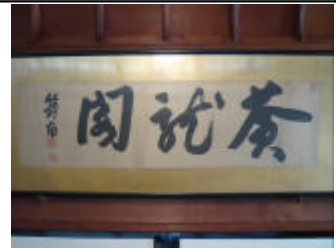 黄龍閣